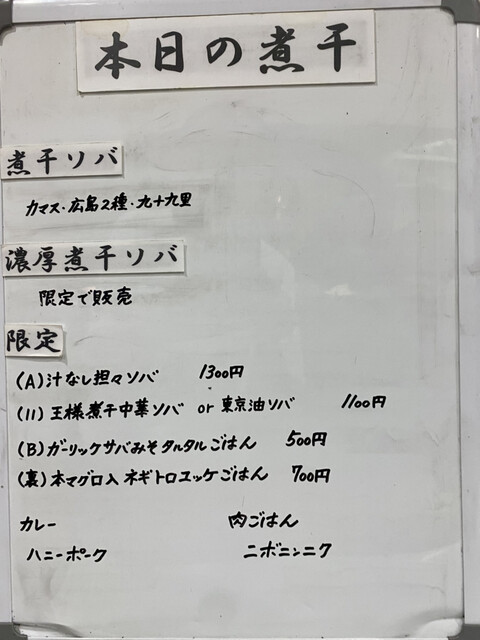 本日の煮干
煮干ソバ
カマス・広島2種・九十九里
濃厚煮干ソバ
限定で販売
限定
(A)汁なし担々ソバ 1300円
(11)王様煮干中華ソバ or 東京油ソバ 1100円
(B)ガーリックサバみそタルタルごはん 500円
(裏)本マグロ入ネギトロユッケごはん 700円
カレー 肉ごはん
ハニーポーク ニボニンニク